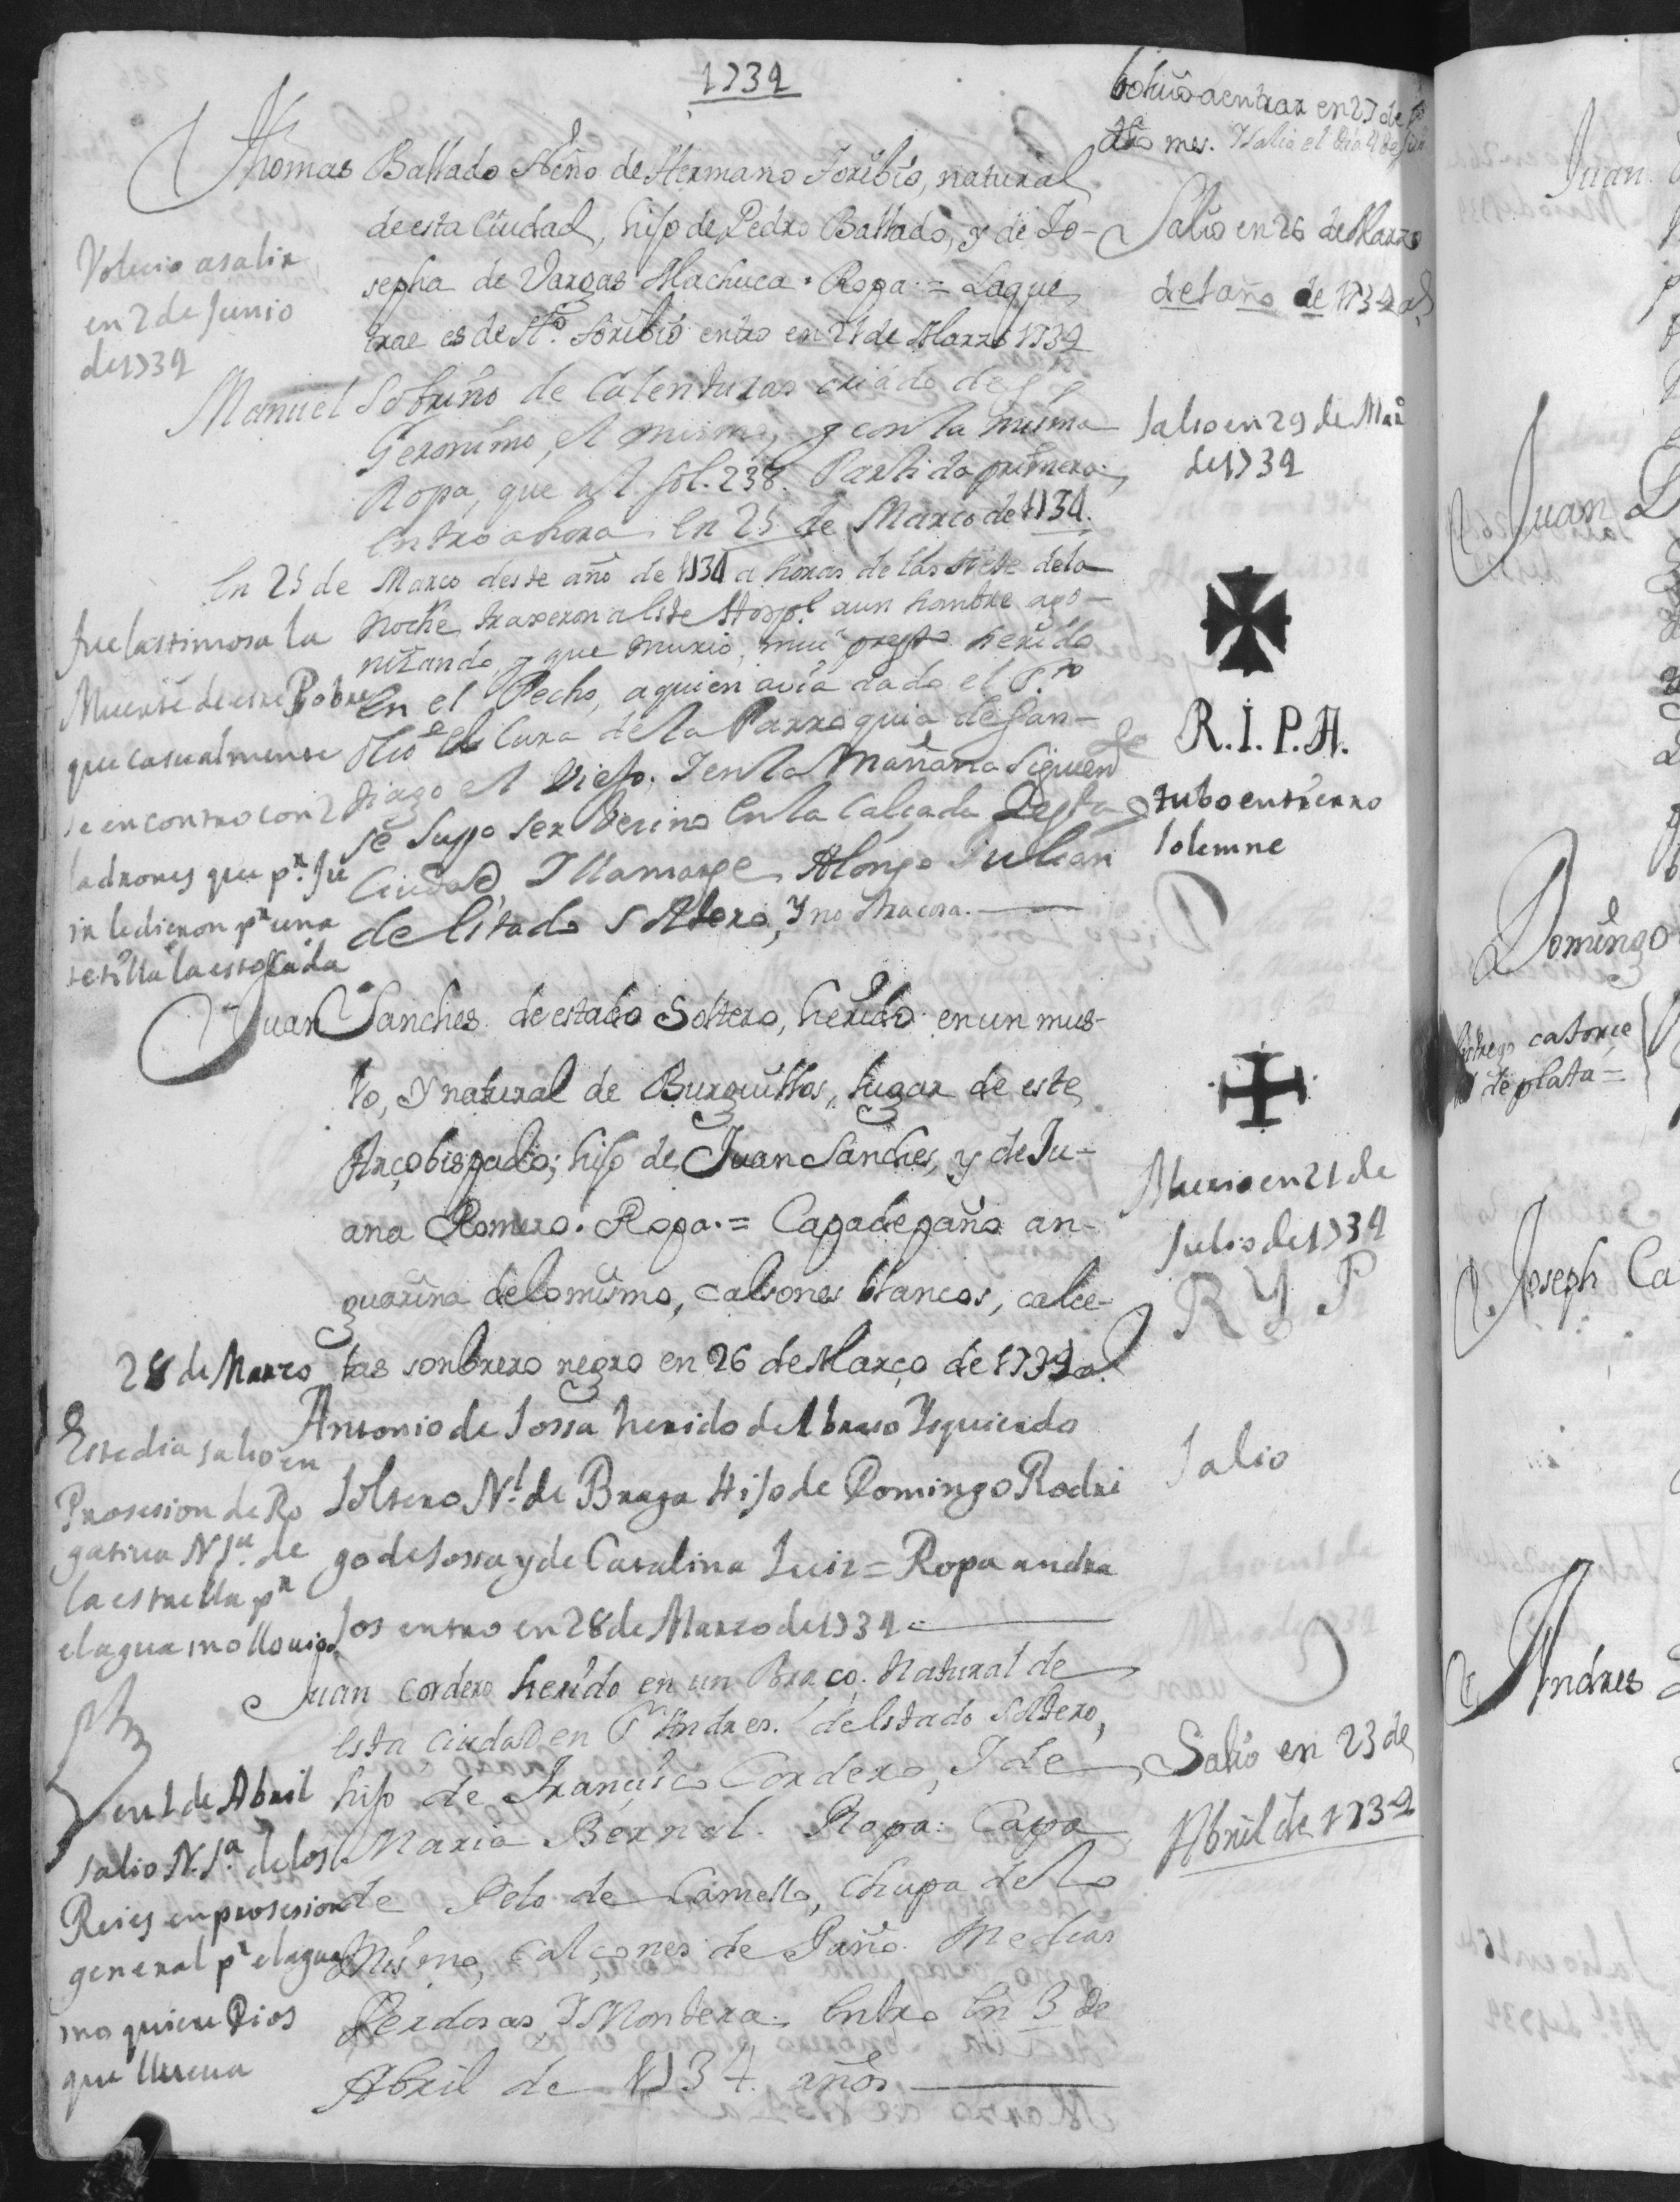 1734
bolvio a entrar en 27 de
dho mes. Y salio el dia 4 de
Thomas Ballado Niño de Hermano Toribio, natural
de esta Ciudad, hijo de Pedro Ballado, y de Jo-
sepha de Vargas Machuca. Ropa = La que
trae es de Sto. Toribio entro en 21 de Marzo 1734
Volvio a salir
en 2 de Junio
de 1734
Salio en 26 de Marzo
del año de 1734 a.
Manuel Sobrino de Calenturas criado de
Geronimo, el mismo, y con la misma
Ropa, que al fol. 238. Partida primera.
Entro ahora en 25 de Março de 1734.
Salio en 29 de Mar
de 1734
En 25 de Março deste año de 1734 a horas de las siete de la
noche traxeron a este Hospl. a un hombre ago-
nizando, y que murio, mui presto herido
en el Pecho, a quien avia dado el
Olio el Cura de la Parroquia de San-
tiago el Viejo. Y en la mañana Siguiente
se supo ser Vecino en la Calçada Desta
Ciudad, Y llamarse Alonso Julian
de estado soltero, Y no tra cosa.
fue lastimosa la
Muerte de este Pobre
que casualmente
se encontro con 2
ladrones que pr. fu
ir le dieron pr una
tetilla la estocada
R. I. P. A.
tubo entierro
solemne
Juan Sanches de estado Soltero, herido en un mus-
lo, Y natural de Burguillos, lugar de este
Arçobispado; hijo de Juan Sanches, y de Ju-
ana Romero. Ropa. = Capa de paño an-
guarina de lo mismo, calsones blancos, calce-
tas sonbrero negro en 26 de Março de 1734 a.
Murio en 21 de
Julio de 1734
R Y P
28 de Marzo
Este dia salio en
Prosesion de Ro
gativa N Sa. de
la estrella pr
el agua i no llovio
Antonio de Sossa herido del braso Ysquierdo
soltero Nl. de Braga Hijo de Domingo Rodri
go de Sossa y de Catalina Luis = Ropa andra
jos entro en 28 de Marzo de 1734
Salio
Juan Cordero herido en un Braço. Natural de
esta Ciudad en Sn Andres. de estado soltero,
hijo de Francisco Cordero, Y de
Maria Bernal. Ropa: Capa
de Pelo de Camello, Chupa de lo
mismo, Calçones de Paño. Medias
Perdosas, Y Montera. Entro en 3 de
Abril de 1734. años
en 1 de Abril
salio N. Sa. de los
Reies en prosesion
general pr el agua
i no quiere Dios
que llueva
Salio en 23 de
Abril de 1734
Juan
Juan
Domingo
catorce
de plata =
Joseph Ca
Andres